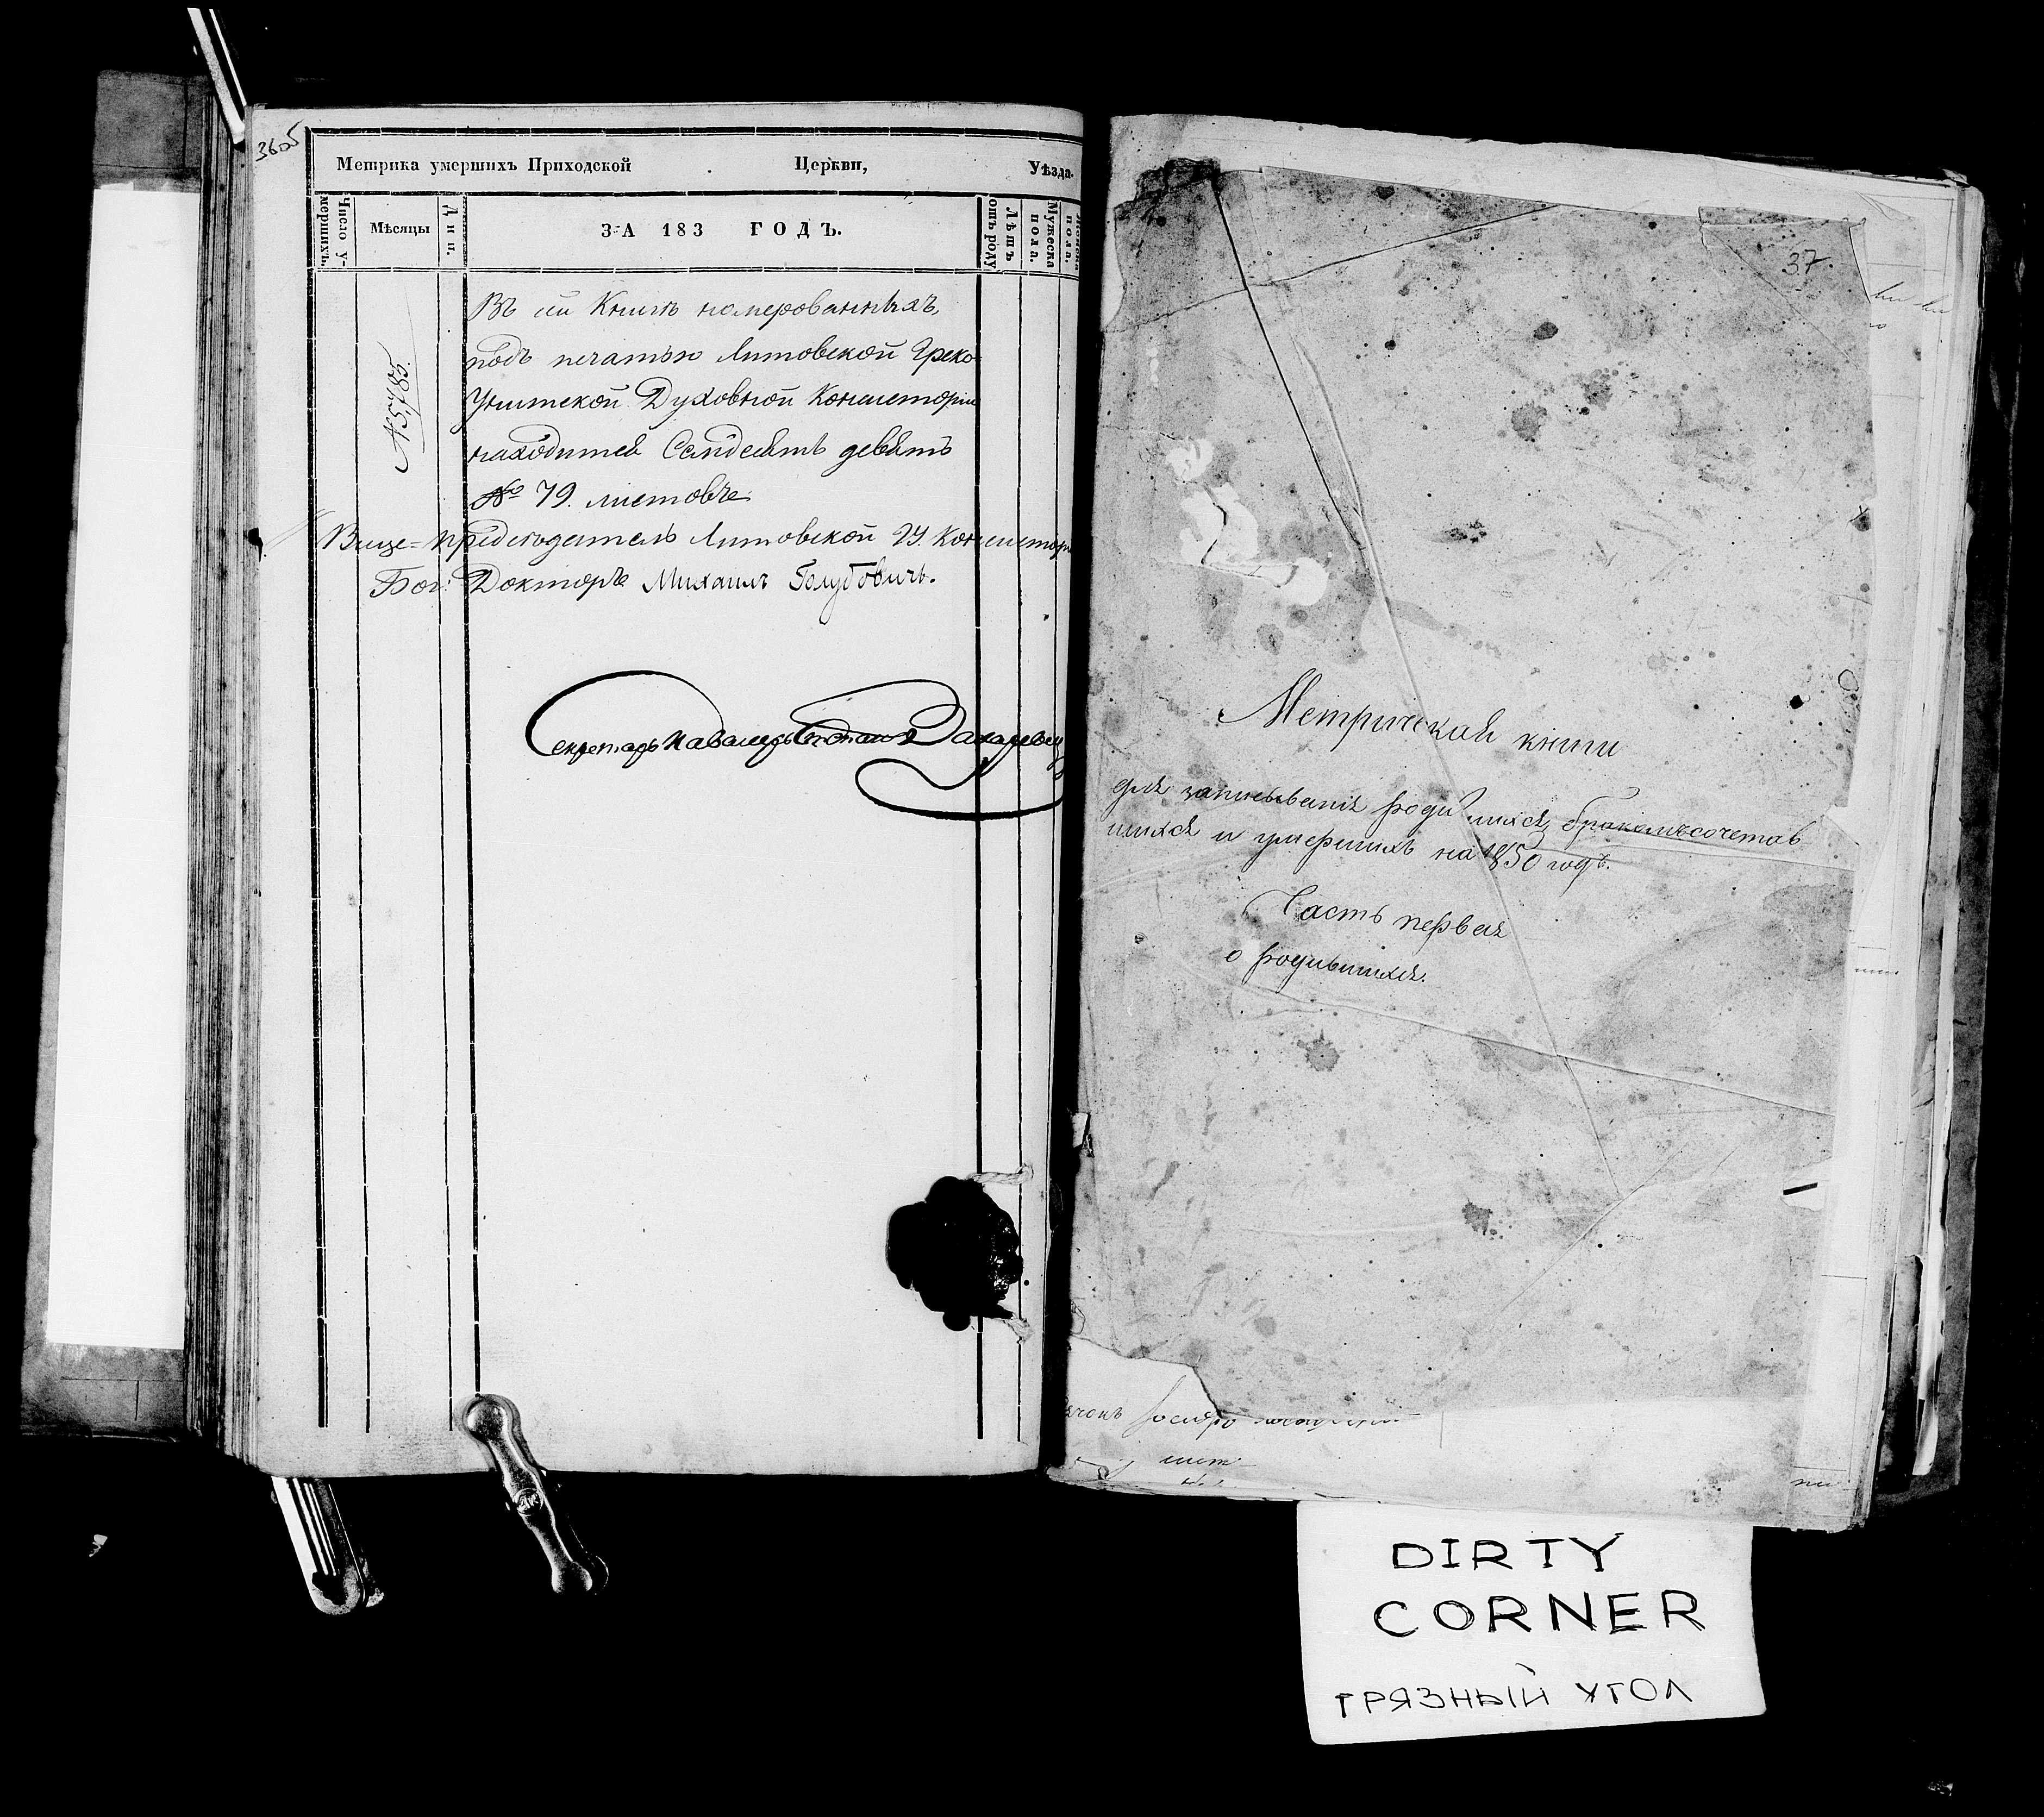 3605
Метрика умершихъ Приходской Церкви, Уѣзда.
Число умершихъ.
Мѣсяцы
Дни.
ЗА 183 ГОДЪ.
Лѣтъ отъ роду
Мужеска пола.
пола.
№ 5,785.
Въ сій Книгѣ номерованныхъ,
подъ печатью Литовской Греко
Унитской Духовной Консисторіи
находится Семдесятъ девять
№ 79. листовъ
Вице=предсѣдатель Литовской ГУ. Консисторіи
Бог: Докторъ Михаилъ Голубовичъ.
Секретарь
37
Метрической книги
для записыванія родившихся, бракомъсочетав
шихся и умершихъ на 1850 годъ.
Часть первая
о родившихся.
DIRTY
CORNER
ГРЯЗНЫЙ УГОЛ